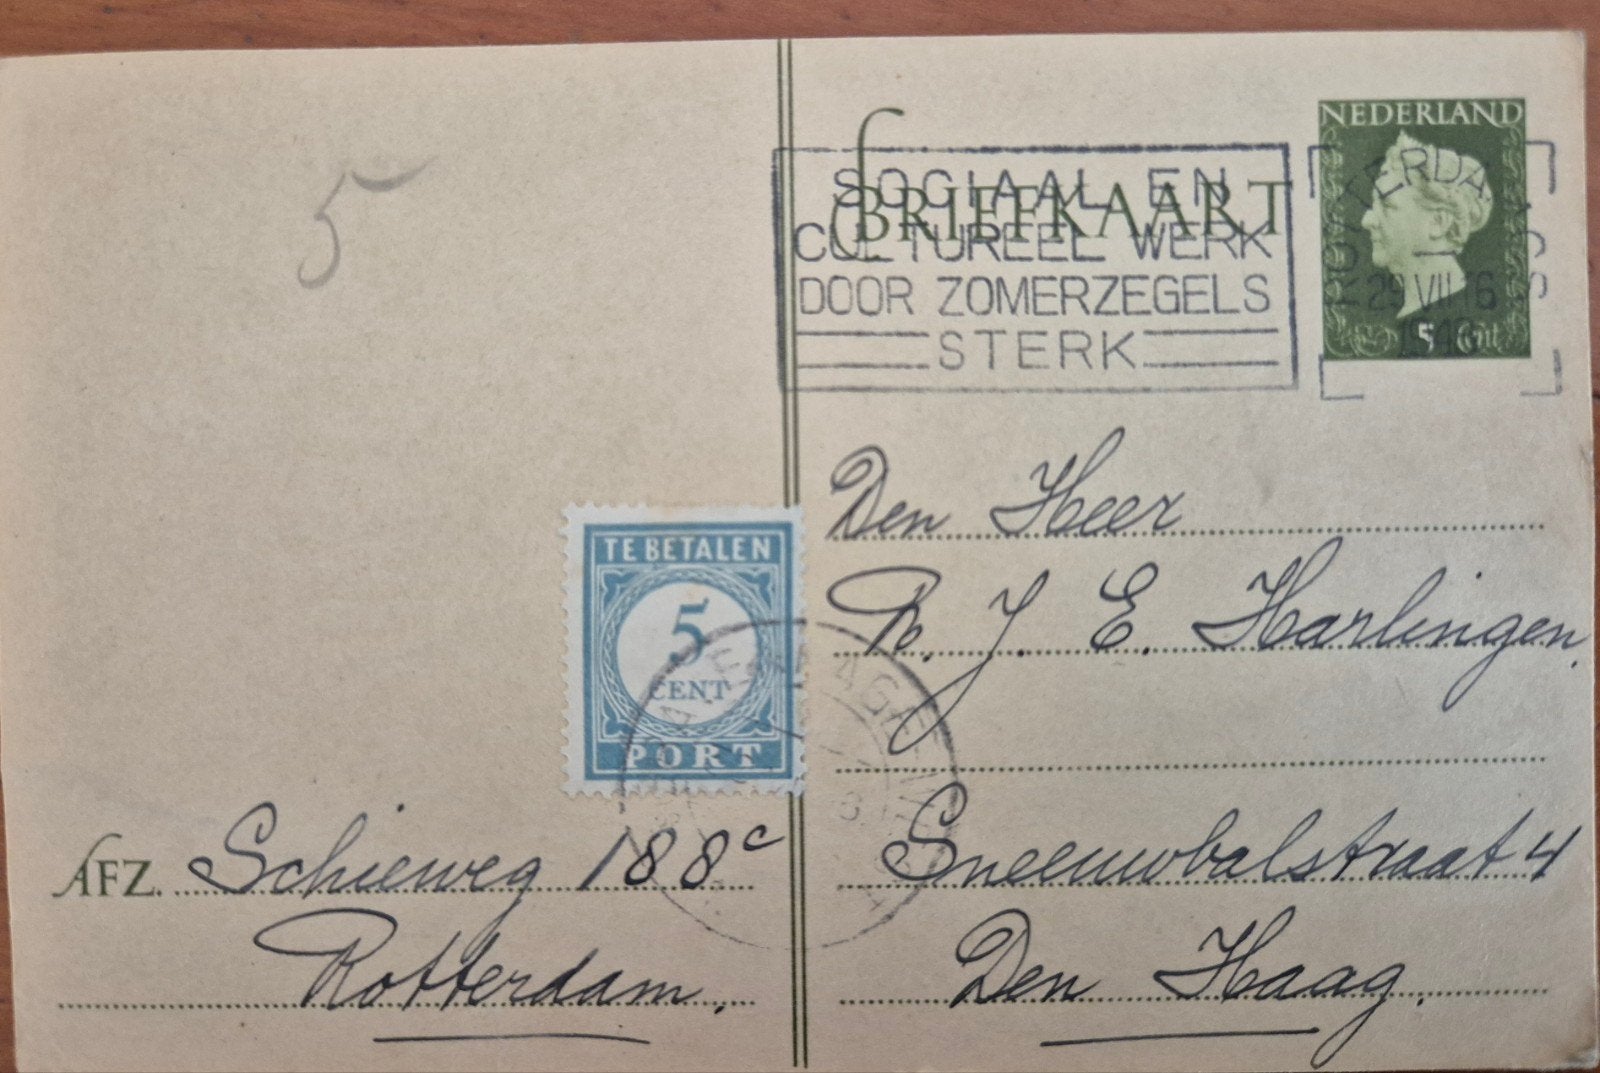 5
BRIEFKAART
SOCIAAL EN
CULTUREEL WERK
DOOR ZOMERZEGELS
STERK
NEDERLAND
ROTTERDAM
29 VII 16
1948
5 Cent
TE BETALEN
5
CENT
PORT
'S-GRAVENHAGE
Den Heer
R. J. E. Harlingen,
Sneeuwbalstraat 4
Den Haag.
AFZ. Schieweg 188c
Rotterdam.